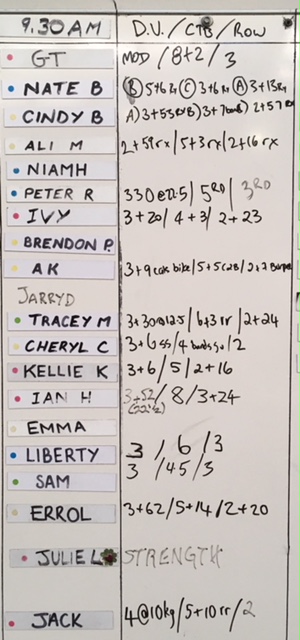 9.30AM D.V./CTB/ROW
GT MOD/8+2/3
NATE B (B) 5+6 Rx (C) 3+6 Rx (A) 3+13Rx
CINDY B A) 3+53RX B) 3+7 C) 2+57 RX
ALI M 2+59rx/5+3rx/2+16rx
NIAMH
PETER R 330@22.5/5RD/3RD
IVY 3+20/4+3/2+23
BRENDON P.
AK 3+9 cals bike/5+5
JARRYD
TRACEY M 3+30@12.5/6+3rr/2+24
CHERYL C 3+6ss/4 bands/2
KELLIE K 3+6/5/2+16
IAN H 3+52/8/3+24
(22½)
EMMA
LIBERTY 3/6/3
SAM 3/45/3
ERROL 3+62/5+14/2+20
JULIE L STRENGTH
JACK 4@10kg/5+10rr/2